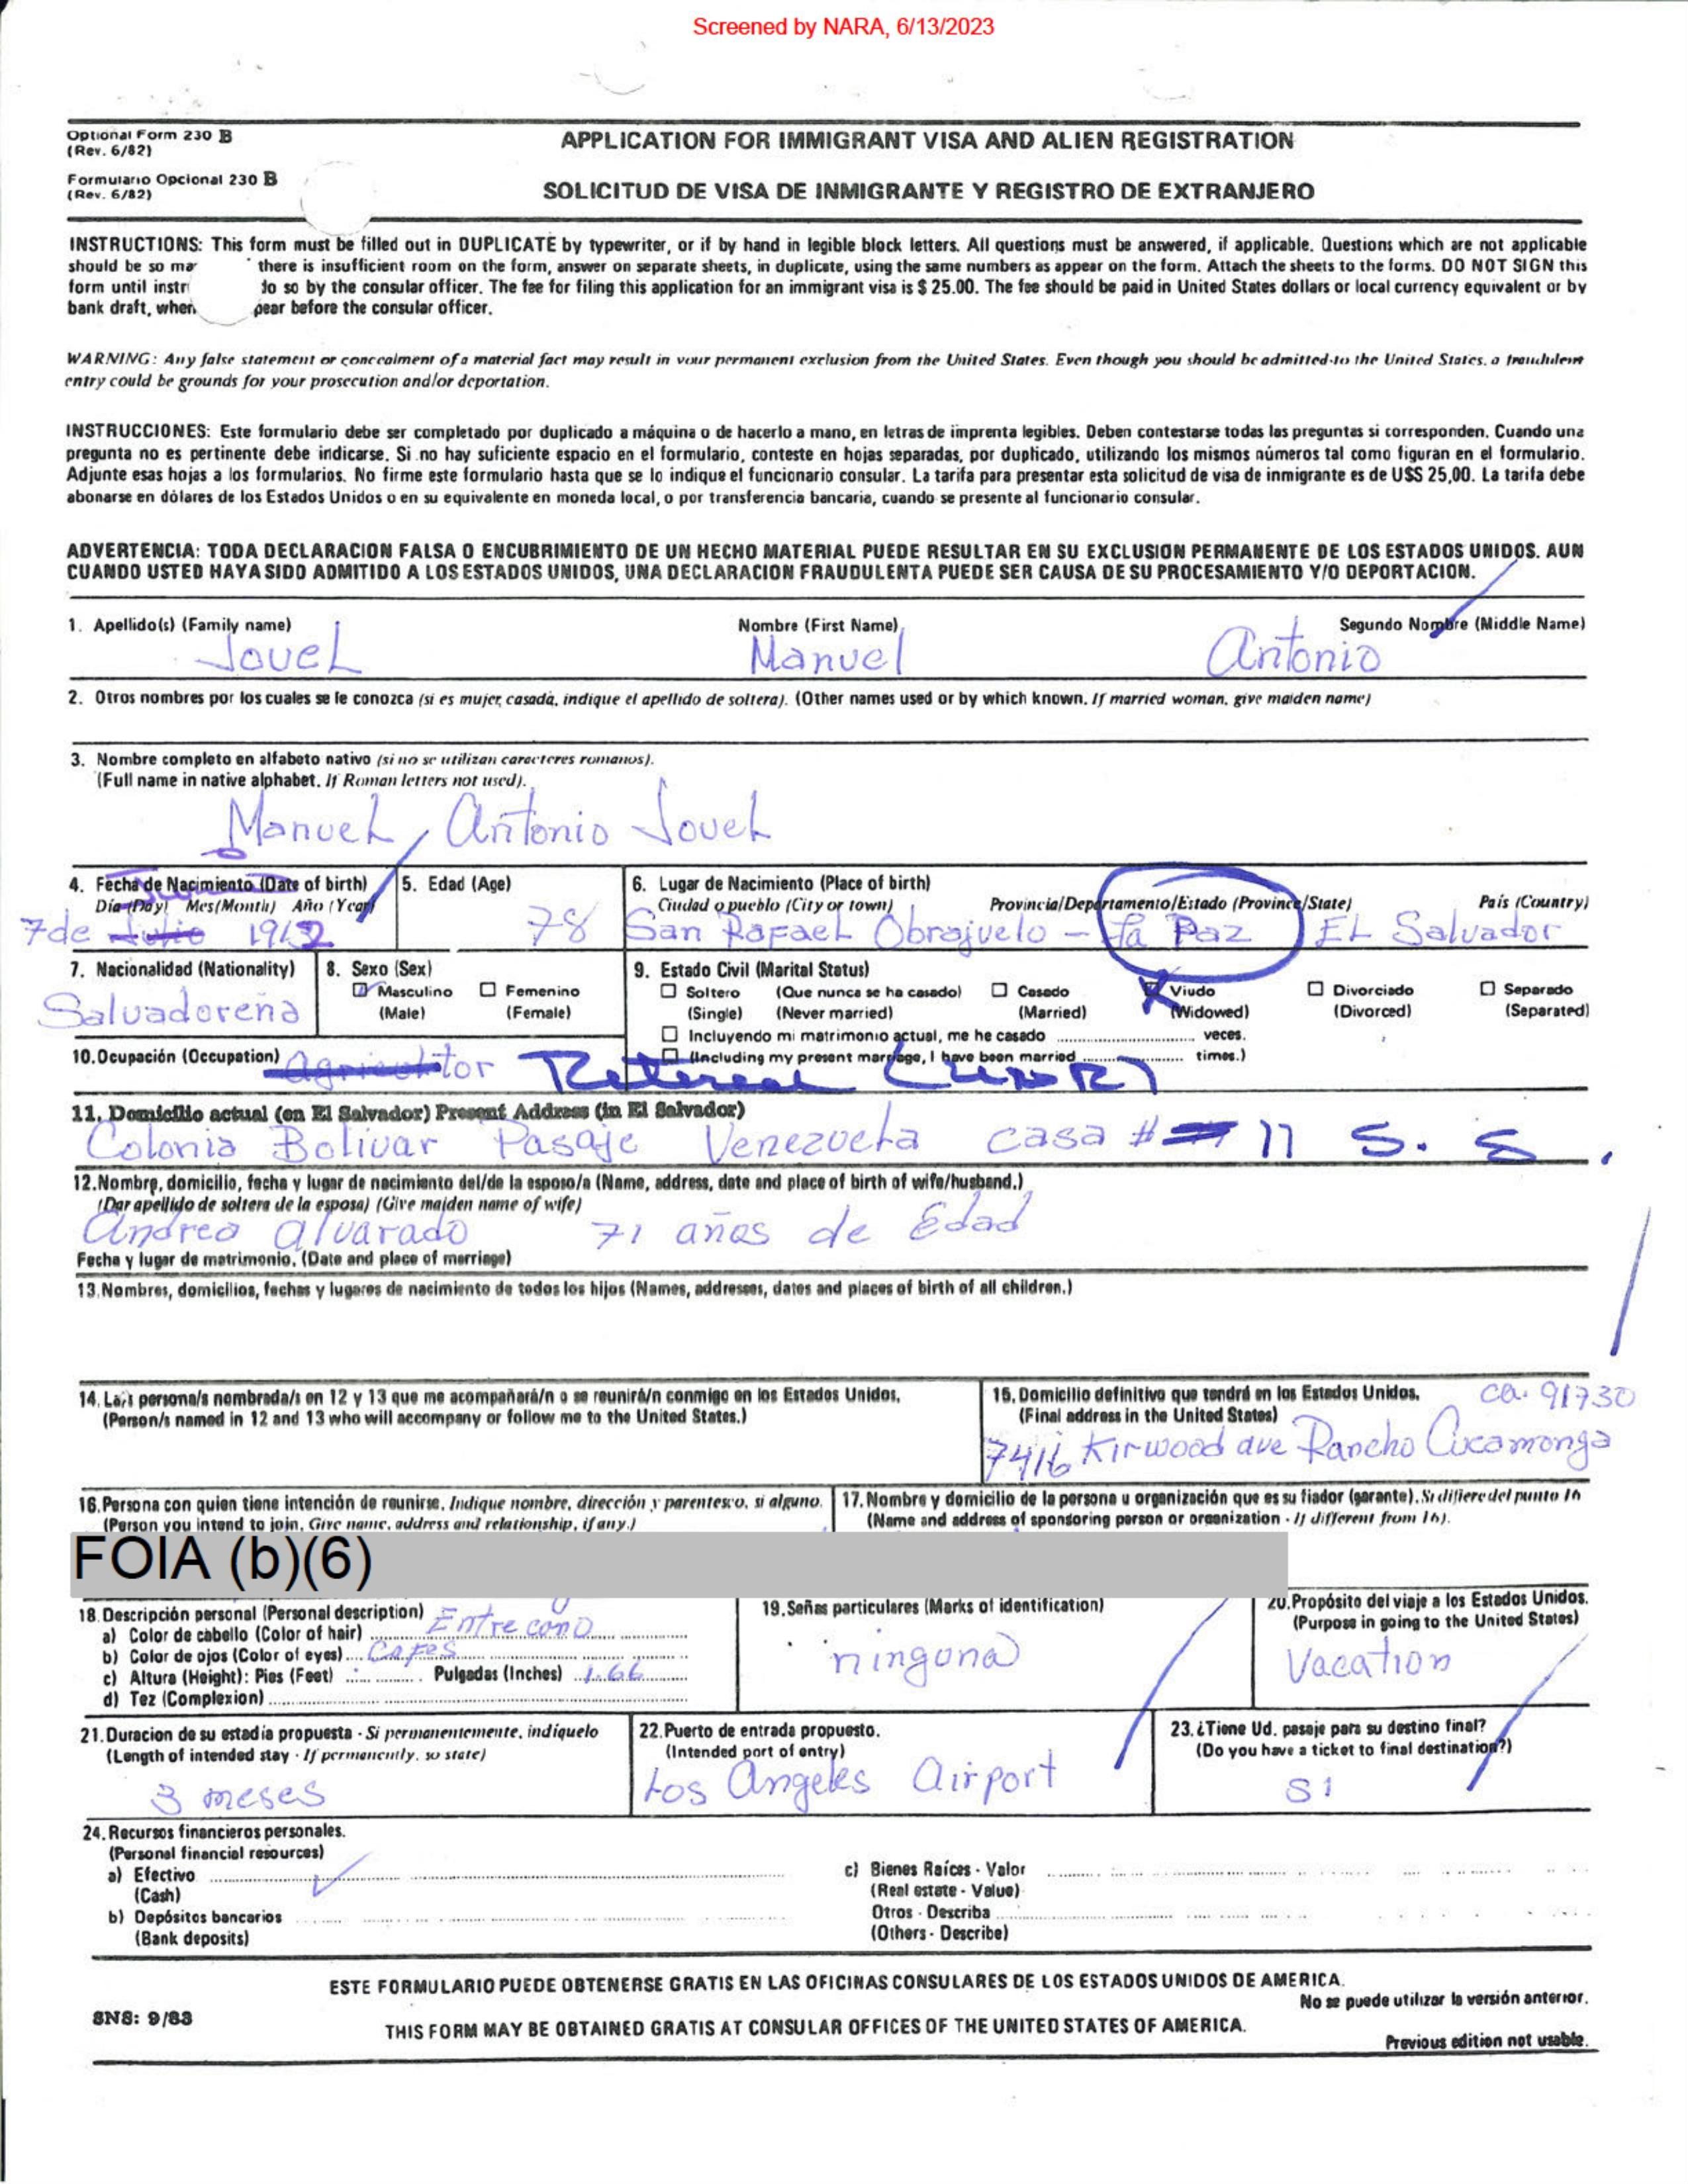 Screened by NARA, 6/13/2023
Optional Form 230 B
(Rev. 6/82)
APPLICATION FOR IMMIGRANT VISA AND ALIEN REGISTRATION
Formulario Opcional 230 B
(Rev. 6/82)
SOLICITUD DE VISA DE INMIGRANTE Y REGISTRO DE EXTRANJERO
INSTRUCTIONS: This form must be filled out in DUPLICATE by typewriter, or if by hand in legible block letters. All questions must be answered, if applicable. Questions which are not applicable
should be so ma there is insufficient room on the form, answer on separate sheets, in duplicate, using the same numbers as appear on the form. Attach the sheets to the forms. DO NOT SIGN this
form until instr do so by the consular officer. The fee for filing this application for an immigrant visa is $ 25.00. The fee should be paid in United States dollars or local currency equivalent or by
bank draft, when pear before the consular officer.
WARNING: Any false statement or concealment of a material fact may result in your permanent exclusion from the United States. Even though you should be admitted to the United States, a fraudulent
entry could be grounds for your prosecution and/or deportation.
INSTRUCCIONES: Este formulario debe ser completado por duplicado a máquina o de hacerlo a mano, en letras de imprenta legibles. Deben contestarse todas las preguntas si corresponden. Cuando una
pregunta no es pertinente debe indicarse. Si no hay suficiente espacio en el formulario, conteste en hojas separadas, por duplicado, utilizando los mismos números tal como figuran en el formulario.
Adjunte esas hojas a los formularios. No firme este formulario hasta que se lo indique el funcionario consular. La tarifa para presentar esta solicitud de visa de inmigrante es de U$S 25,00. La tarifa debe
abonarse en dólares de los Estados Unidos o en su equivalente en moneda local, o por transferencia bancaria, cuando se presente al funcionario consular.
ADVERTENCIA: TODA DECLARACION FALSA O ENCUBRIMIENTO DE UN HECHO MATERIAL PUEDE RESULTAR EN SU EXCLUSION PERMANENTE DE LOS ESTADOS UNIDOS. AUN
CUANDO USTED HAYA SIDO ADMITIDO A LOS ESTADOS UNIDOS, UNA DECLARACION FRAUDULENTA PUEDE SER CAUSA DE SU PROCESAMIENTO Y/O DEPORTACION.
1. Apellido(s) (Family name) Nombre (First Name) Segundo Nombre (Middle Name)
Jovel Manuel Antonio
2. Otros nombres por los cuales se le conozca (si es mujer casada, indique el apellido de soltera). (Other names used or by which known. If married woman, give maiden name)
3. Nombre completo en alfabeto nativo (si no se utilizan caracteres romanos).
(Full name in native alphabet. If Roman letters not used).
Manuel, Antonio Jovel
4. Fecha de Nacimiento (Date of birth) 5. Edad (Age) 6. Lugar de Nacimiento (Place of birth)
Día (Day) Mes(Month) Año (Year) Ciudad o pueblo (City or town) Provincia/Departamento/Estado (Province/State) País (Country)
7 de Julio 78 San Rafael Obrajuelo - La Paz EL Salvador
7. Nacionalidad (Nationality) 8. Sexo (Sex) 9. Estado Civil (Marital Status)
Salvadoreña
Masculino Femenino Soltero (Que nunca se ha casado) Casado Viudo Divorciado Separado
(Male) (Female) (Single) (Never married) (Married) (Widowed) (Divorced) (Separated)
Incluyendo mi matrimonio actual, me he casado veces.
(Including my present marriage, I have been married times.)
10. Ocupación (Occupation) Agricultor
11. Domicilio actual (en El Salvador) Present Address (in El Salvador)
Colonia Bolivar Pasaje Venezuela casa # 11 S. S.
12. Nombre, domicilio, fecha y lugar de nacimiento del/de la esposo/a (Name, address, date and place of birth of wife/husband.)
(Dar apellido de soltera de la esposa) (Give maiden name of wife)
Andrea Alvarado 71 años de Edad
Fecha y lugar de matrimonio. (Date and place of marriage)
13. Nombres, domicilios, fechas y lugares de nacimiento de todos los hijos (Names, addresses, dates and places of birth of all children.)
14. La/s persona/s nombrada/s en 12 y 13 que me acompañará/n o se reunirá/n conmigo en los Estados Unidos.
(Person/s named in 12 and 13 who will accompany or follow me to the United States.)
15. Domicilio definitivo que tendré en los Estados Unidos. Ca. 91730
(Final address in the United States)
7416 Kirwood ave Rancho Cucamonga
16. Persona con quien tiene intención de reunirse. Indique nombre, dirección y parentesco, si alguno.
(Person you intend to join. Give name, address and relationship, if any.)
17. Nombre y domicilio de la persona u organización que es su fiador (garante). Si difiere del punto 16
(Name and address of sponsoring person or organization - If different from 16).
FOIA (b)(6)
18. Descripción personal (Personal description)
a) Color de cabello (Color of hair) Entre cano
b) Color de ojos (Color of eyes) Cafes
c) Altura (Height): Pies (Feet) Pulgadas (Inches) 1.66
d) Tez (Complexion)
19. Señas particulares (Marks of identification)
ninguna
20. Propósito del viaje a los Estados Unidos.
(Purpose in going to the United States)
Vacation
21. Duracion de su estadia propuesta - Si permanentemente, indíquelo
(Length of intended stay - If permanently, so state)
3 meses
22. Puerto de entrada propuesto.
(Intended port of entry)
Los Angeles Airport
23. ¿Tiene Ud. pasaje para su destino final?
(Do you have a ticket to final destination?)
Si
24. Recursos financieros personales.
(Personal financial resources)
a) Efectivo
(Cash)
b) Depósitos bancarios
(Bank deposits)
c) Bienes Raíces - Valor
(Real estate - Value)
Otros - Describa
(Others - Describe)
ESTE FORMULARIO PUEDE OBTENERSE GRATIS EN LAS OFICINAS CONSULARES DE LOS ESTADOS UNIDOS DE AMERICA.
No se puede utilizar la versión anterior.
SNS: 9/83
THIS FORM MAY BE OBTAINED GRATIS AT CONSULAR OFFICES OF THE UNITED STATES OF AMERICA.
Previous edition not usable.